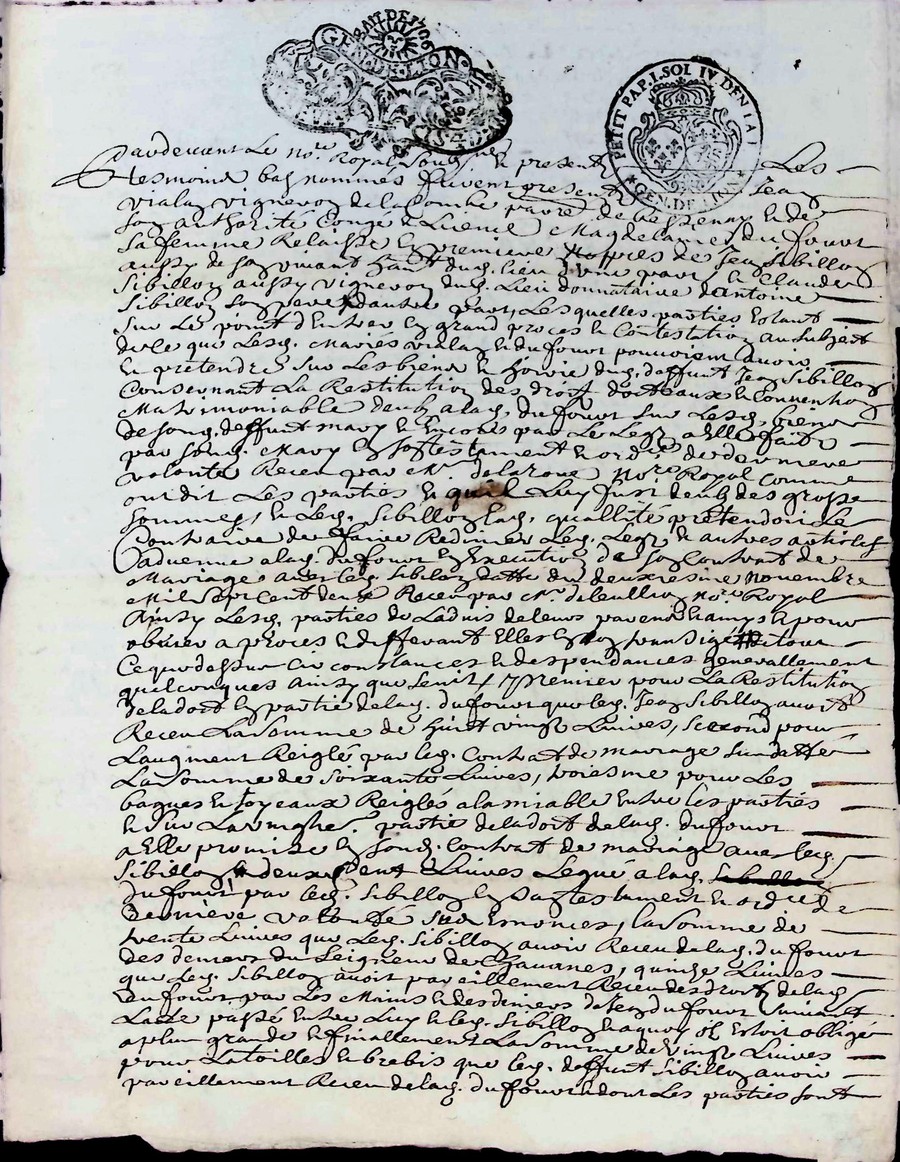 GEN. DE LION
PETIT PAP. I. SOL IV DEN LA F
GEN. DE LION
Pardevant Le no.re Royal Soubs.né et present Les
tesmoins bas nommés furent present Jean
vialay vigneron de la Combe
Son authorité Congé et Licence Magdelaine du fourt
Sa femme Relaissée en premieres Nopces de Jean Sibillon
aussy de son vivant dud. lieu d'une part et Claude
Sibillon aussy vigneron dud. Lieu donnataire dantoine
Sibillon son pere d'autre part, Lesquelles parties Estant
Sur Le point d'Entrer en grand proces et Contestation au Subject
de Ce que Lesd. Maries vialay et du fourt pouvoient avoir
et pretendre Sur Les biens et hoirie dud. deffunt Jean Sibillon
Consernant La Restitution des droits dotteaux et Convention
Matrimoniable deub a lad. du fourt Sur Lesd. biens
de Sond. deffunt mary et Encores par Le Legz a Elle faict
par Sond. Mary en Son testament et ordre. de derniere
volonté Receu par M.e delaroue No.re Royal comme
ont dit Les parties et quil Luy fust deub des grosse
Sommes, et Led. Sibillon en lad. quallité pretendoit Le
Contraire de faire Redimer Led. Legz et autres articles
advenue a lad. du fourt en Execution de Son Contrat de
Mariage avec led. Sibillon datté du deuxiesme novembre
Mil Sept Cent deux Receu par M.e No.re Royal
Ainsy Lesd. parties de Ladvis de leurs parens et amys et pour
obvier a proces et differant Elles
Ce que dessus Circonstances et despendances generallement
quelconques Ainsy que Senit, premier pour La Restitution
de la dot en partie de lad. du fourt que led. Jean Sibillon avoit
Receu La Somme de huit vingt Livres, Second pour
Laugment Reiglé par led. Contrat de mariage Susdatté
La Somme de Soixante Livres, troiesme pour Les
bagues et Joyeaux Reiglés a lamiable Entre les parties
et Sur partie de la dot de lad. du fourt
a Elle promise en Sond. Contrat de mariage avec led.
Sibillon deux Cent Livres Legué a lad.
du fourt par led. Sibillon en Sond. testament et ordre. de
derniere volonté Sus Enoncés, la Somme de
trente Livres que Led. Sibillon avoit Receu de lad. du fourt
des deniers du Seigneur de Chavanes, quinze Livres
que Led. Sibillon avoit pareillement Receu des droits de lad.
du fourt par Les Mains et des deniers de Jean du fourt Suivant
Lacte passé Entre Luy et led. Sibillon et aquoy Il Estoit obligé
a plus grande et finallement La Somme de Vingt Livres
pour et brebis que led. deffunt Sibillon avoit
pareillement Receu de lad. du fourt et dont Les parties Sont